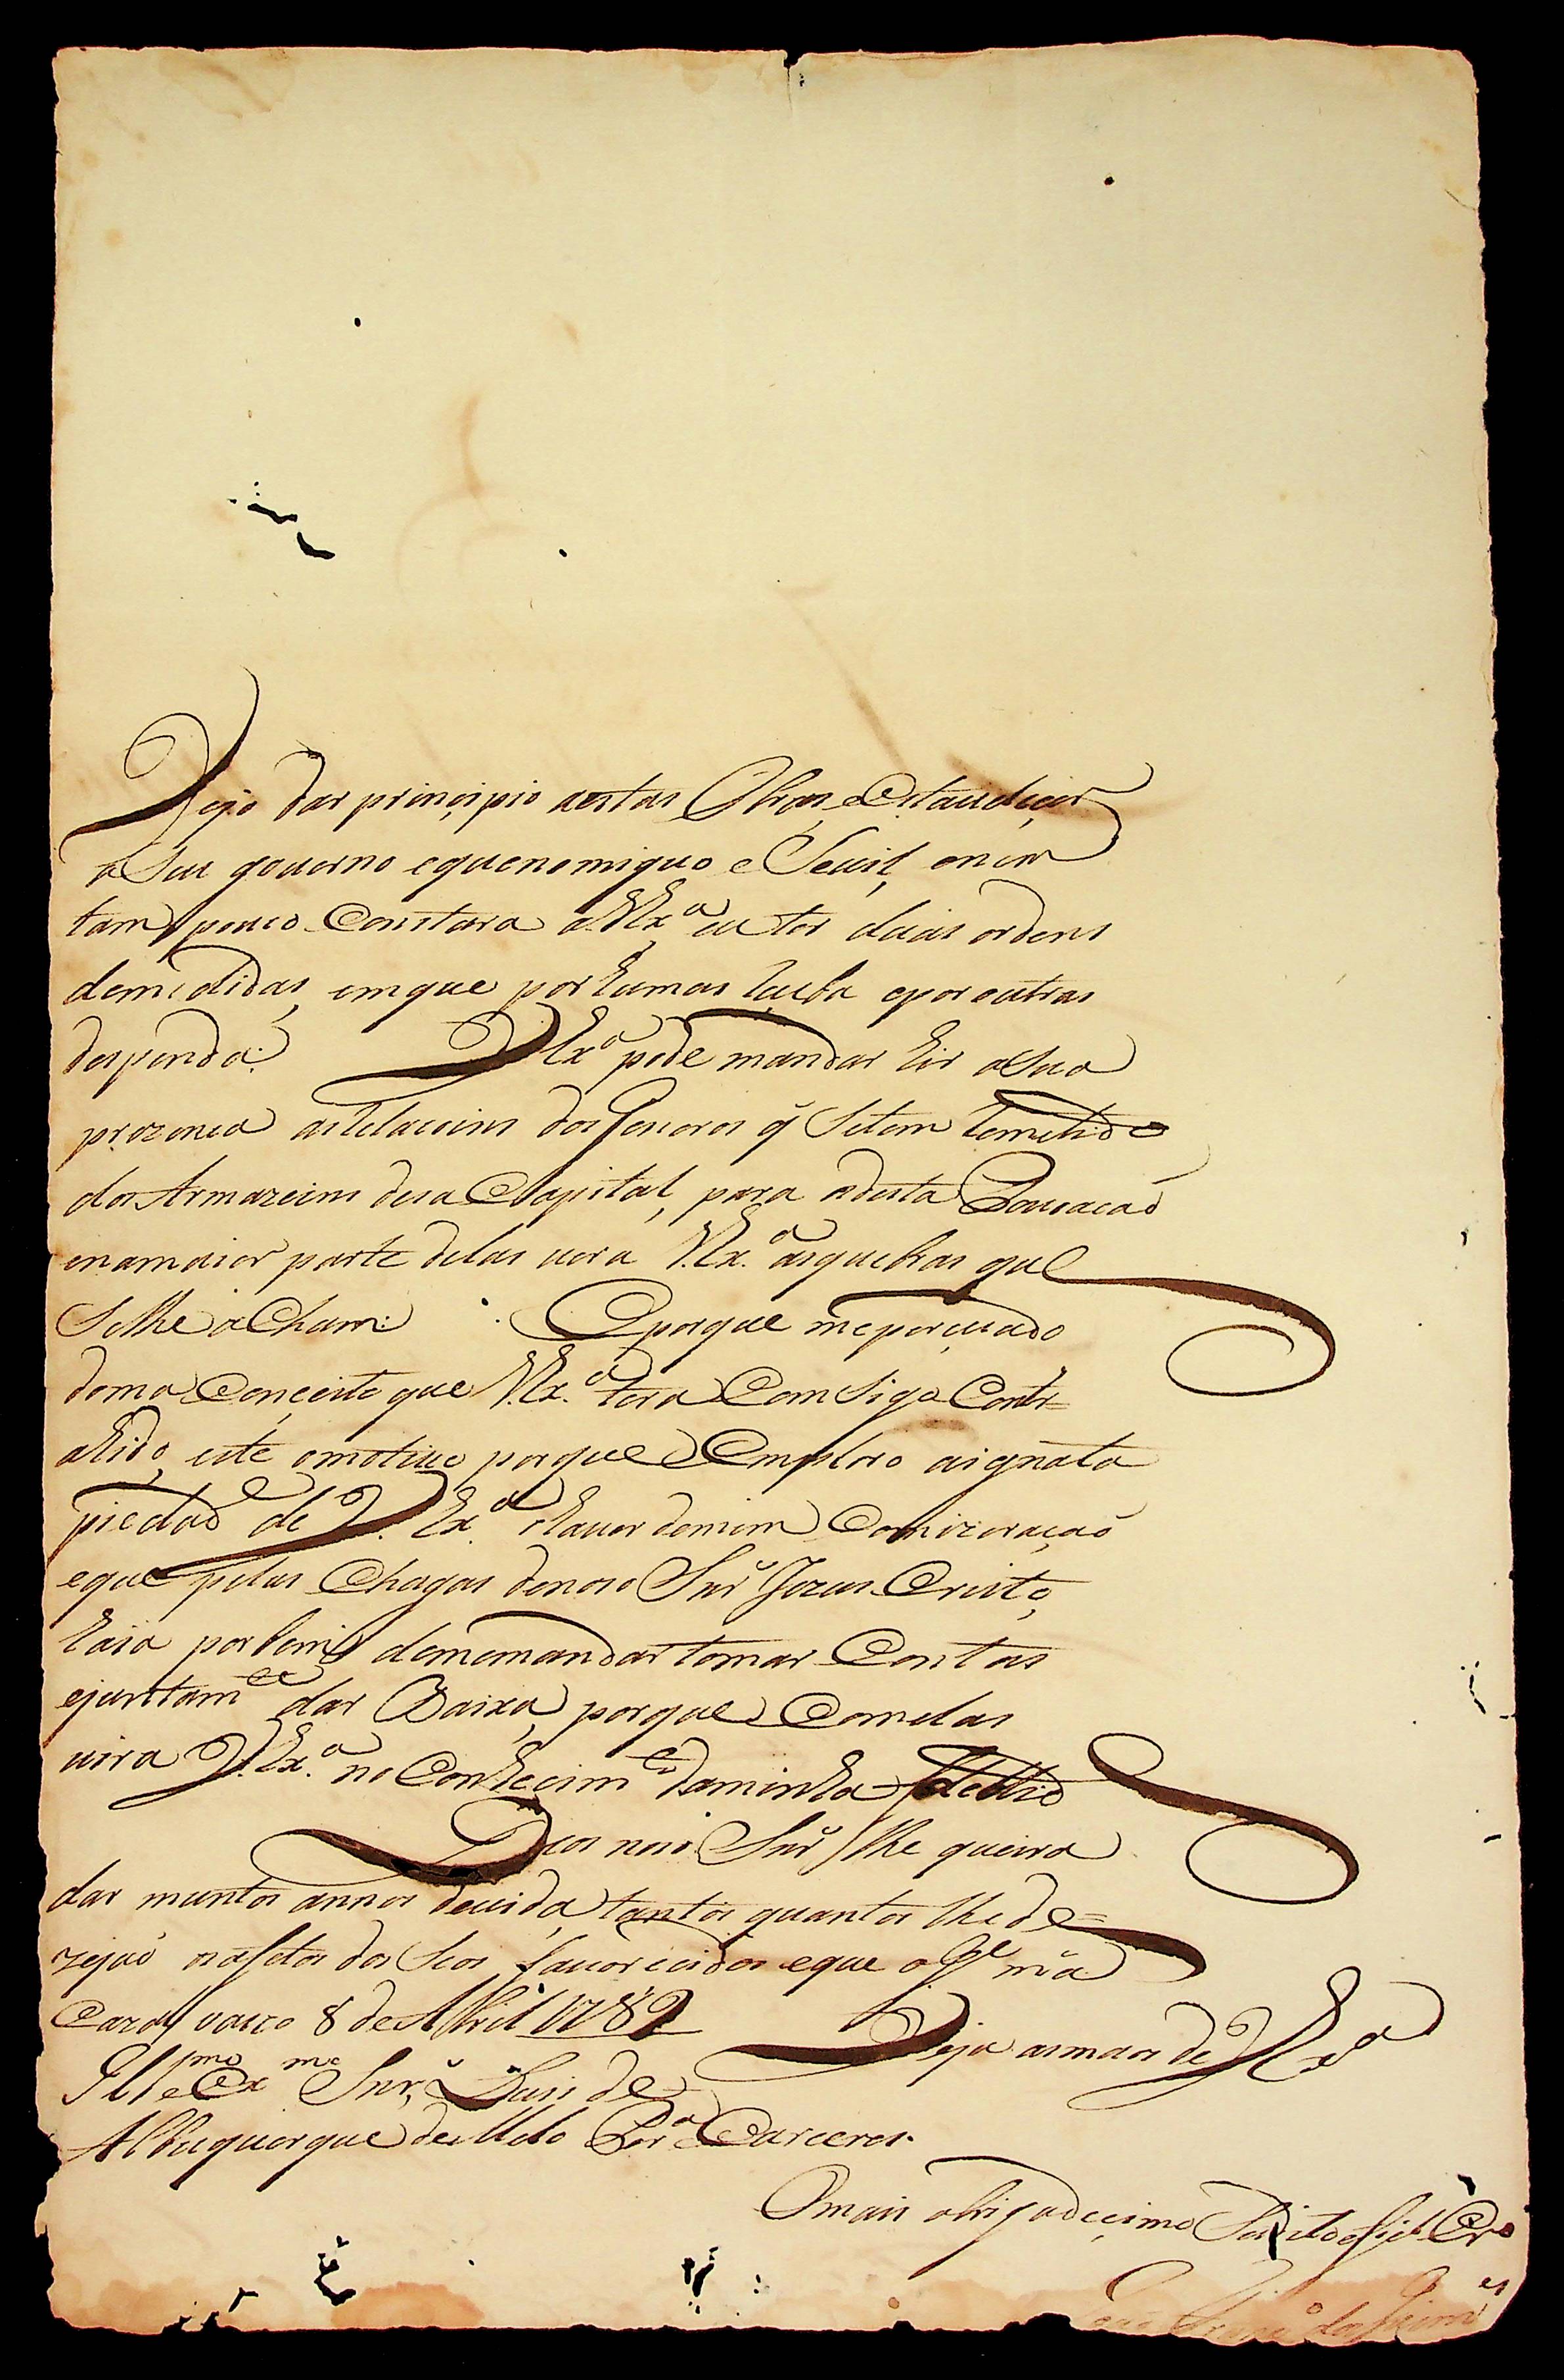 Vejo dar principio aestas Obras, e Estaudeçer
o Seu gouerno equenomiquo e Seuil, enem
tam pouco Constara a V.Exª eu ter duas ordens
demididas, emque por humas reçeba epor outras
despenda: V.Exª pode mandar hir a Sua
prezenca as relacoins dos Generos q̃ Setem remetido
dos Armazeins desa Capital, para adesta Pouoacaõ
enamaior parte delas uera V.Exª asquebras que
Selhe a Cham: Eporque meperçuado
domao Conçeito que V.Exª tera Comsigo Contr=
ahido, este omotiuo porque Emploro aignata
piedad.e de V.Exª hauer demim Comizeraçaõ
eque pelas Chagas denoso Snr̃ Jezus Cristo,
haia porbem dememandar tomar Contas
ejuntam.te dar Baixa, porque Comelas
uira V.Exª no Conhecim.to daminha
Deos noso Snr̃ lhe queira
dar muntos annos deuida, tantos quantos lhede=
zejaõ osafetos dos Seos fauorecidos eque o G.e m.a
Cazaluasco 8 de Abril 1782
Beja asmaos de V.Exª
Ill.mo e Ex.mo Snr̃ Luis de
Albuquerque de Melo Per.ª e Carceres.
Omais obrigadeçimo Sudito e fiel Cr.o